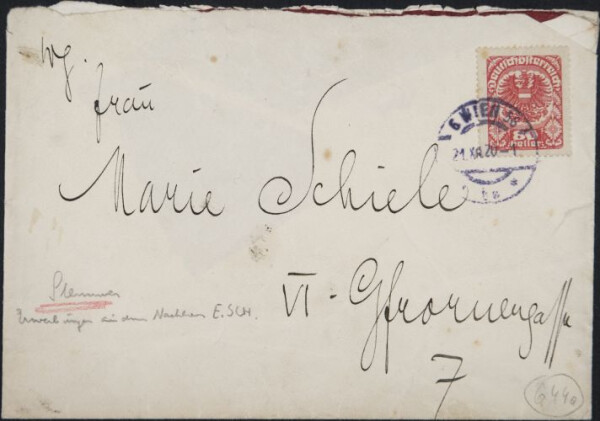 Wg.
Frau
Marie Schiele
VI - Gfrornergasse
7
Deutschösterreich
80
Heller
6 WIEN 56
21.XII.20
Erwerbungen aus dem Nachlass E. SCH.
G 440